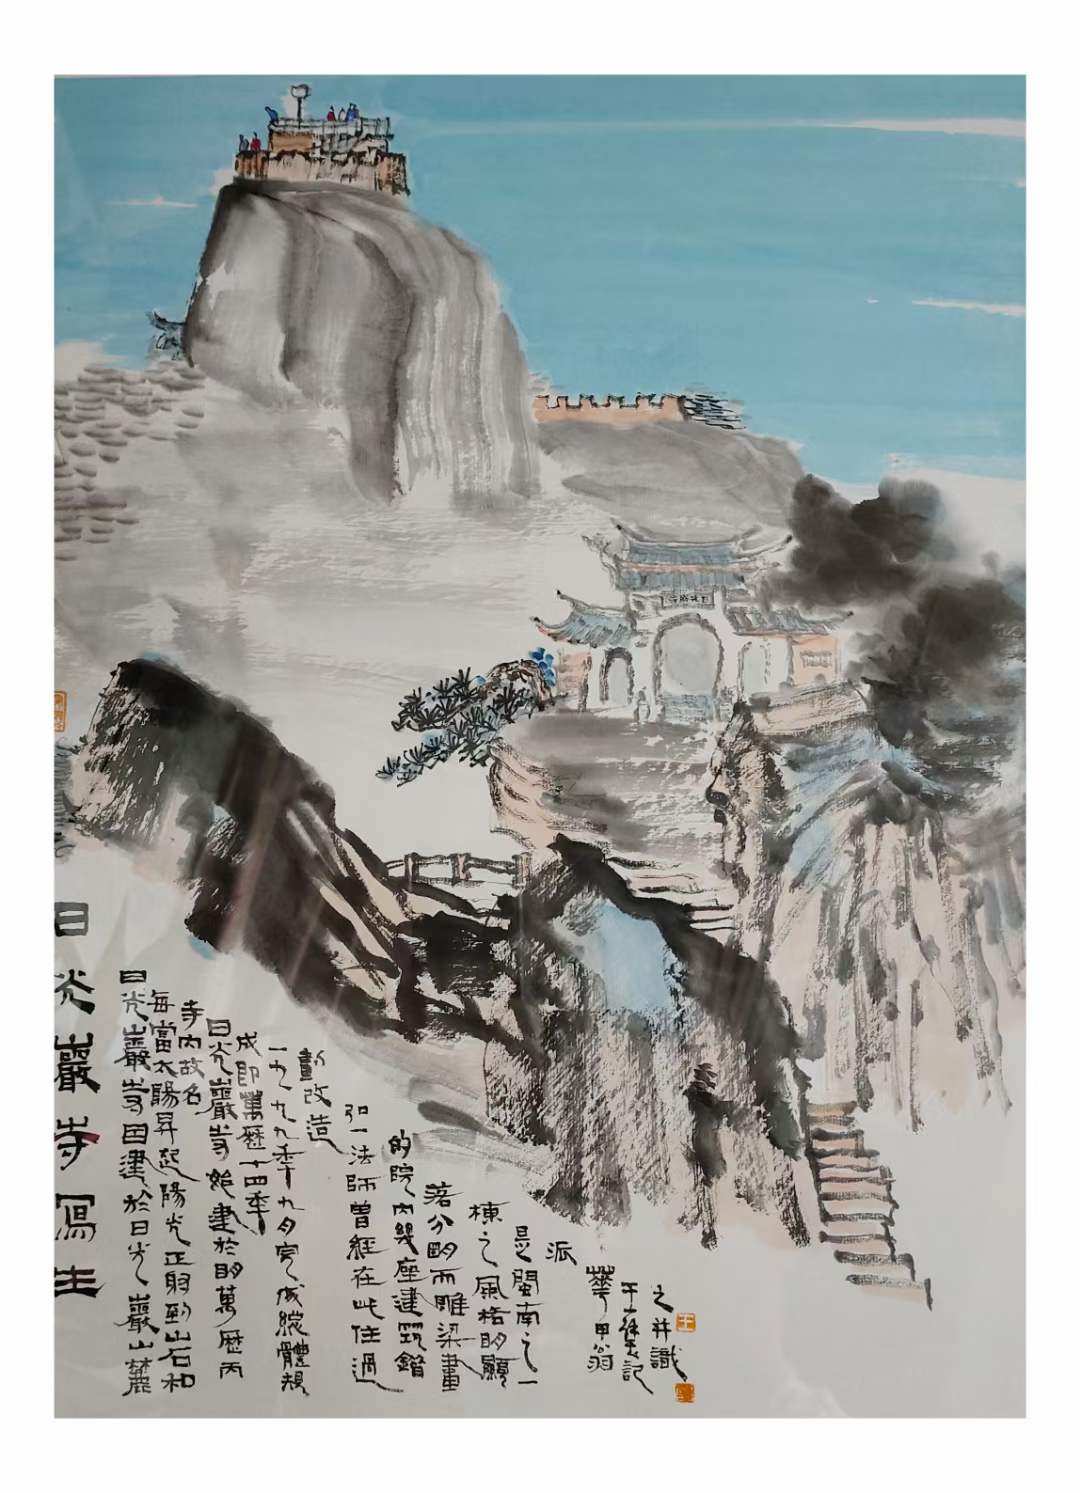 日光巖寺寫生
日光巖寺因建於日光巖山麓
每當太陽昇起陽光正射到山石和
寺内故名
日光巖寺始建於明萬歷丙
戌即萬歷十四季
一九九九季九月完成總體規
劃改造
弘一法師曾經在此住過
的院内幾座建筑錯
落分明而雕梁畫
棟之風格明顯
是閩南之一
派
華甲翁
記
之并識
王